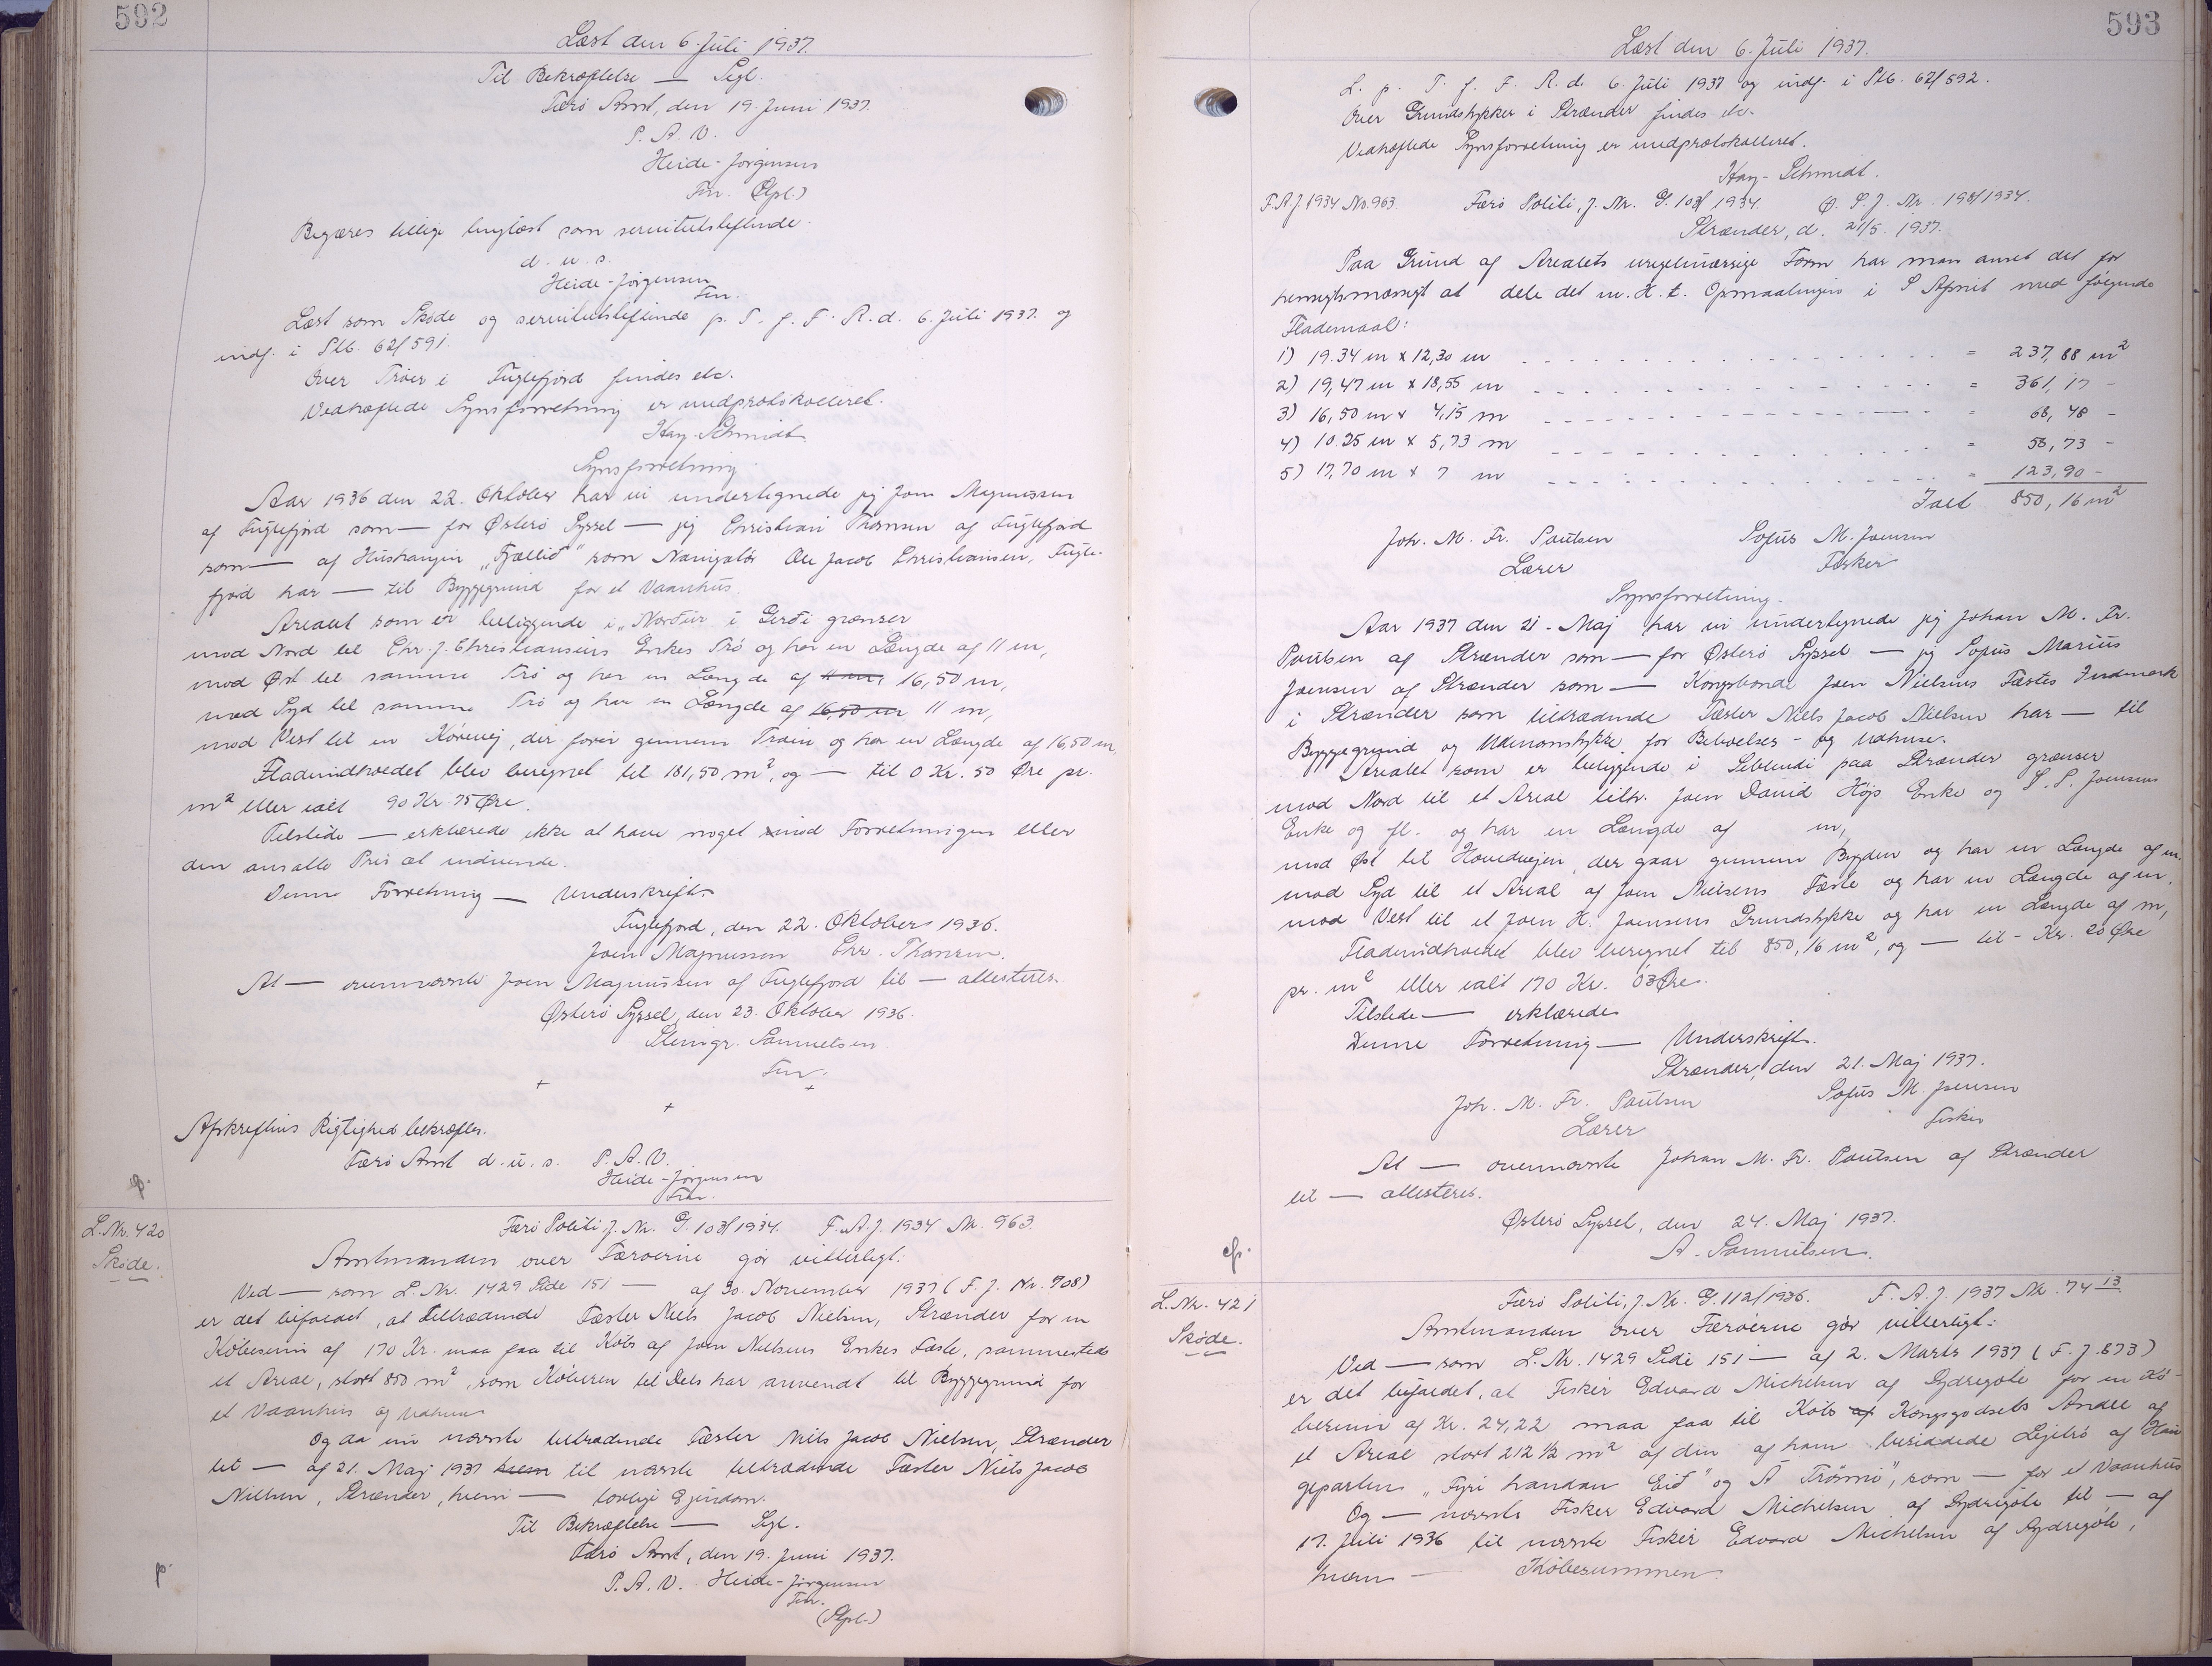 592
Læst den 6. Juli 1937.
Til Bekræftelse — Segl.
Færø Amt, den 19. Juni 1937.
P. A. V.
Heide-Jørgensen
Fm. (Stpl.)
Begæres tillige tinglæst som servitutstiftende.
d. u. s.
Heide-Jørgensen
Fm.
Læst som Skøde og servitutstiftende p. T. f. F. R. d. 6. Juli 1937. og
indf. i Skb. 62/591.
Over Trøer i Fuglefjord findes etc.
Vedhæftede Synsforretning er medprotokolleret.
Kay-Schmidt.
Synsforretning
Aar 1936 den 22. Oktober har vi undertegnede jeg Joen Magnussen
af Fuglefjord som — for Østerø Syssel — jeg Christian Thomsen af Fuglefjord
som — af Hushaugen „Fjællið" som Navigatør Ole Jacob Christiansen, Fugle-
fjord har — til Byggegrund for et Vaanhus.
Arealet som er beliggende i „Norður i Gerði grænser
mod Nord til Chr. J. Christiansens Enkes Trø og har en Længde af 11 m,
mod Øst til samme Trø og har en Længde af 11 m 16,50 m,
mod Syd til samme Trø og har en Længde af 16,50 m 11 m,
mod Vest til en Kørevej, der fører gennem Trøen og har en Længde af 16,50 m
Fladeindholdet blev beregnet til 181,50 m², og — til 0 Kr. 50 Øre pr.
m² eller ialt 90 Kr. 75 Øre.
Tilstede — erklærede ikke at have noget imod Forretningen eller
den ansatte Pris at indvende.
Denne Forretning — Underskrift.
Fuglefjord, den 22. Oktober 1936.
Joen Magnussen Chr. Thomsen.
At — ovennævnte Joen Magnussen af Fuglefjord til — attesteres.
Østerø Syssel, den 23. Oktober 1936.
Steingr. Samuelsen
Fm.
+ + +
Afskriftens Rigtighed bekræftes.
Færø Amt d. u. s. P. A. V.
Heide-Jørgensen
Fm.
L. Nr. 420
Skøde.
Færø Politi, J. Nr. G. 103/1934. F. A. J. 1934 Nr. 963.
Amtmanden over Færøerne gør vitterligt:
Ved — som L. Nr. 1429 Side 151 — af 30. November 1937 (F. J. Nr. 708)
er det bifaldet, at tiltrædende Fæster Niels Jacob Nielsen, Strænder for en
Købesum af 170 Kr. maa faa til Købs af Joen Nielsens Enkes Fæste, sammesteds
et Areal, stort 850 m², som Køberen til Dels har anvendt til Byggegrund for
et Vaanhus og Udhuse
Og da nu nævnte tiltrædende Fæster Niels Jacob Nielsen, Strænder
til — af 21. Maj 1937 hvem til nævnte tiltrædende Fæster Niels Jacob
Nielsen, Strænder, hvem — lovlige Ejendom.
Til Bekræftelse — Segl.
Færø Amt, den 19. Juni 1937.
P. A. V. Heide-Jørgensen
Fm.
(Stpl.)
593
Læst den 6. Juli 1937.
L. p. T. f. F. R. d. 6. Juli 1937 og indf. i Skb. 62/592.
Over Grundstykker i Strænder findes etc.
Vedhæftede Synsforretning er medprotokolleret.
Kay-Schmidt.
F. A. J 1934 No. 963. Færø Politi, J. Nr. G. 103/1934. Ø. S. J. Nr. 198/1934.
Strænder, d. 21/5. 1937.
Paa Grund af Arealets uregelmæssige Form har man anset det for
hensigtsmæssigt at dele det m. H. t. Opmaalingen i 5 Afsnit med følgende
Flademaal:
1) 19.34 m x 12,30 m = 237,88 m²
2) 19,47 m x 18,55 m = 361,17 -
3) 16,50 m x 4,15 m = 68,48 -
4) 10.25 m x 5,73 m = 58,73 -
5) 17,70 m x 7 m = 123,90 -
Ialt 850,16 m²
Joh. M. Fr. Poulsen Sofus M. Joensen
Lærer Fisker
Synsforretning.
Aar 1937 den 21. Maj har vi undertegnede jeg Johan M. Fr.
Poulsen af Strænder som — for Østerø Syssel — jeg Sofus Marius
Joensen af Strænder som — Kongsbonde Joen Nielsens Fæstes Indmark
i Strænder som tiltrædende Fæster Niels Jacob Nielsen har — til
Byggegrund og Udenomsstykke for Beboelses- og Udhuse.
Arealet som er beliggende i paa Strænder grænser
mod Nord til et Areal tilh. Joen David Højs Enke og S. P. Joensens
Enke og fl. og har en Længde af m,
mod Øst til Hovedvejen, der gaar gennem Bygden og har en Længde af m.
mod Syd til et Areal af Joen Nielsens Fæste og har en Længde af m.
mod Vest til et Joen H. Joensens Grundstykke og har en Længde af m,
Fladeindholdet blev beregnet til 850,16 m², og — til - Kr. 20 Øre
pr. m² eller ialt 170 Kr. 03 Øre.
Tilstede — erklærede
Denne Forretning — Underskrift.
Strænder, den 21. Maj 1937.
Joh. M. Fr. Poulsen Sofus M. Joensen
Lærer Fisker
At — ovennævnte Johan M. Fr. Poulsen af Strænder
til — attesteres.
Østerø Syssel, den 24. Maj 1937.
A. Samuelsen.
L. Nr. 421
Skøde.
Færø Politi, J. Nr. G. 112/1936. F. A. J. 1937 Nr. 74 13.
Amtmanden over Færøerne gør vitterligt:
Ved — som L. Nr. 1429 Side 151 — af 2. Marts 1937 (F. J. 873)
er det bifaldet, at Fisker Edvard Michelsen af Sydregøte for en Kø-
besum af Kr. 24,22 maa faa til Købs af Kongsgodsets Andel af
et Areal stort 212 1/2 m² af den af ham besiddede Lejetrø af Hau
geparten „Fyri handan Eið" og Á Trømni", som — for et Vaanhus
Og — nævnte Fisker Edvard Michelsen af Sydregøte til — af
17. Juli 1936 til nævnte Fisker Edvard Michelsen af Sydregøte,
hvem — Købesummen.